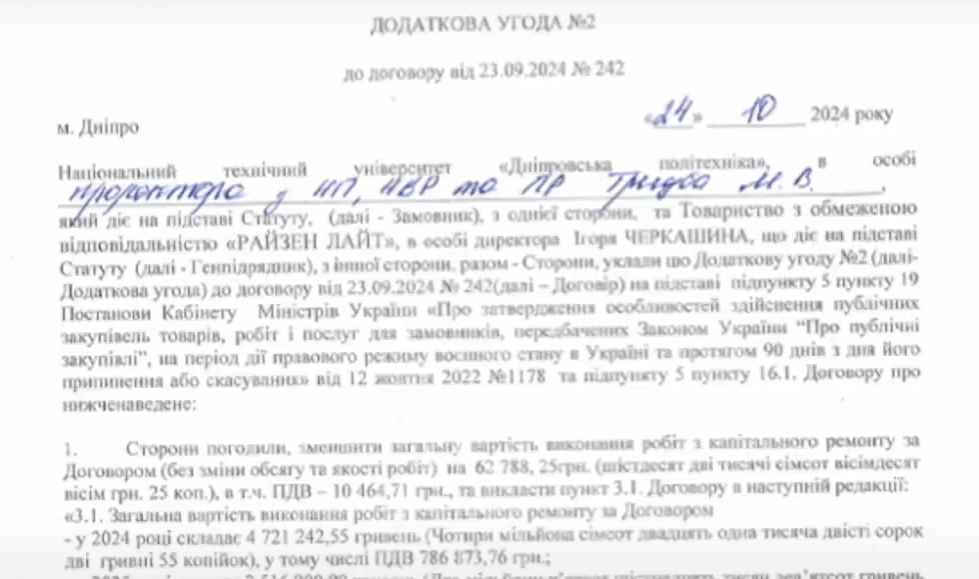 ДОДАТКОВА УГОДА №2
до договору від 23.09.2024 № 242
м. Дніпро «24» 10 2024 року
Національний технічний університет «Дніпровська політехніка», в особі
проректора з НП, НВР та ПР Трегуба М. В.,
який діє на підставі Статуту, (далі - Замовник), з однієї сторони, та Товариство з обмеженою
відповідальністю «РАЙЗЕН ЛАЙТ», в особі директора Ігоря ЧЕРКАШИНА, що діє на підставі
Статуту (далі - Генпідрядник), з іншої сторони, разом - Сторони, уклали цю Додаткову угоду №2 (далі-
Додаткова угода) до договору від 23.09.2024 № 242(далі – Договір) на підставі підпункту 5 пункту 19
Постанови Кабінету Міністрів України «Про затвердження особливостей здійснення публічних
закупівель товарів, робіт і послуг для замовників, передбачених Законом України “Про публічні
закупівлі”, на період дії правового режиму воєнного стану в Україні та протягом 90 днів з дня його
припинення або скасування» від 12 жовтня 2022 №1178 та підпункту 5 пункту 16.1. Договору про
нижченаведене:
1. Сторони погодили, зменшити загальну вартість виконання робіт з капітального ремонту за
Договором (без зміни обсягу та якості робіт) на 62 788, 25грн. (шістдесят дві тисячі сімсот вісімдесят
вісім грн. 25 коп.), в т.ч. ПДВ – 10 464,71 грн., та викласти пункт 3.1. Договору в наступній редакції:
«3.1. Загальна вартість виконання робіт з капітального ремонту за Договором
- у 2024 році складає 4 721 242,55 гривень (Чотири мільйона сімсот двадцять одна тисяча двісті сорок
дві гривні 55 копійок), у тому числі ПДВ 786 873,76 грн.;